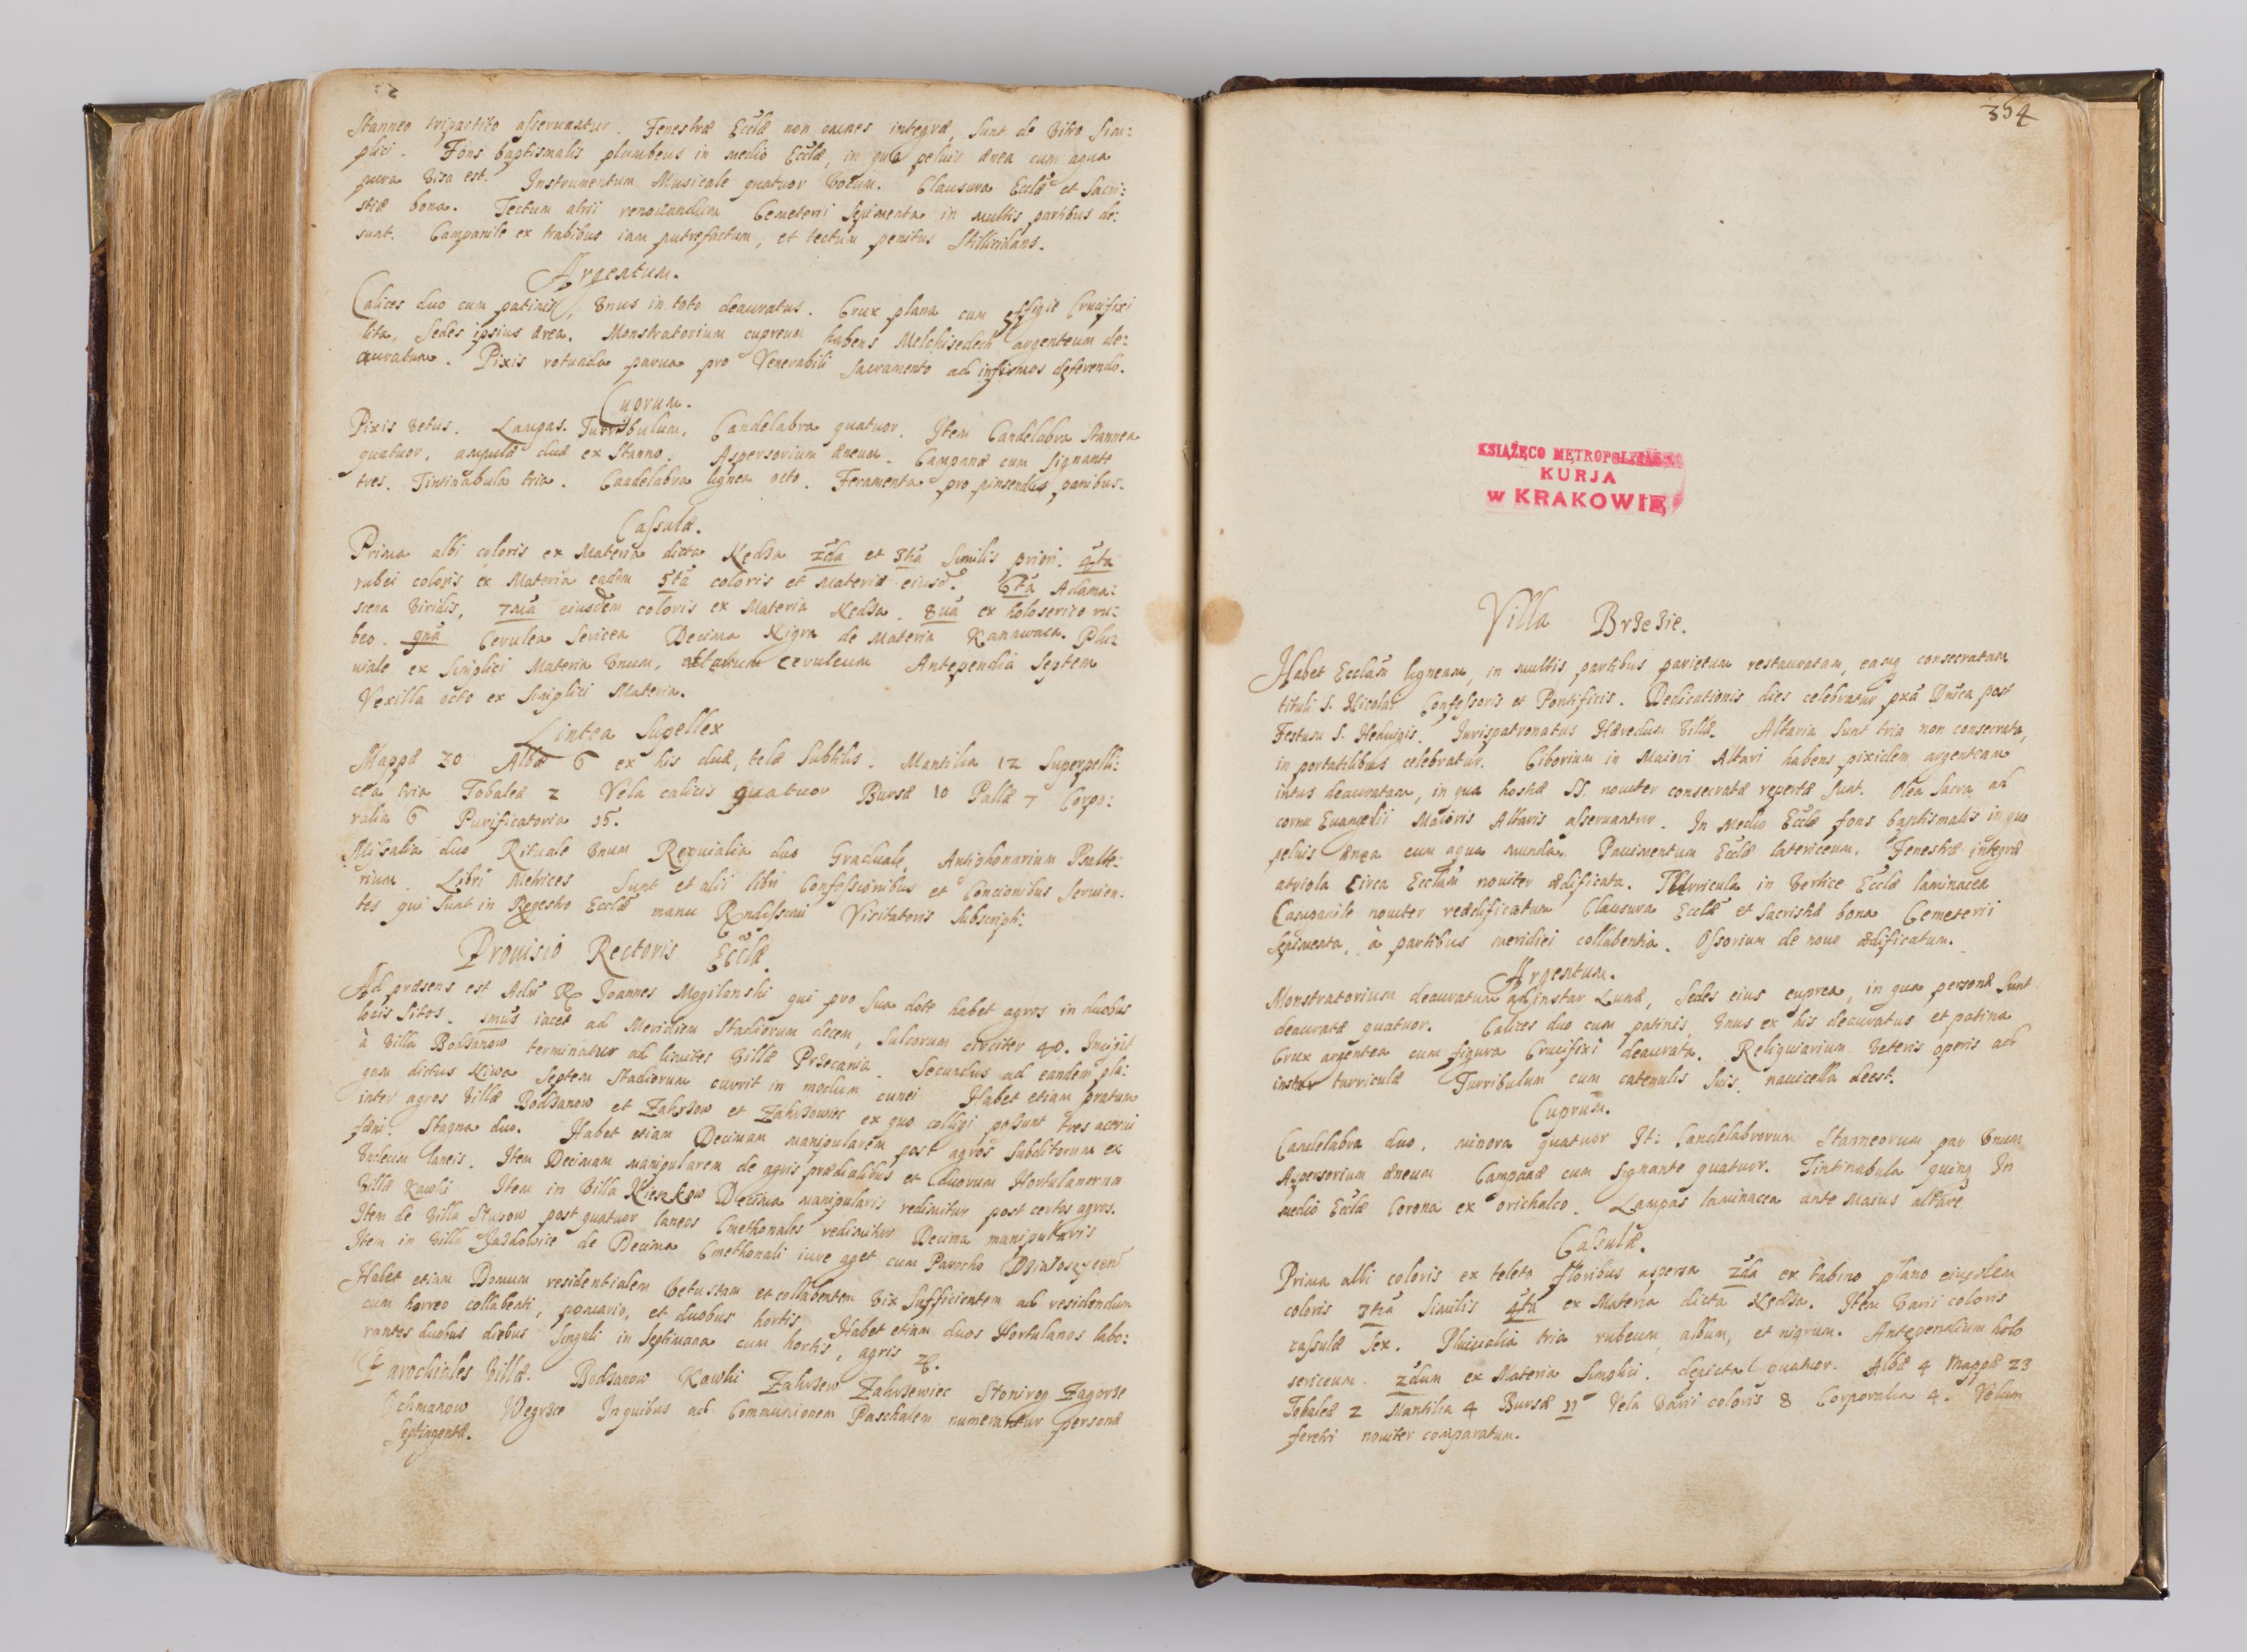 Stanneo tripartito asseruatur. Fenestræ Ecclæ non omnes integræ, sunt de vitro sim:
plici. Fons baptismalis plumbeus in medio Ecclæ, in quo peluis ærea cum aqua
pura visa est. Instrumentum Musicale quatuor vocum. Clausura Ecclæ et Sacri:
stiæ bona. Tectum atrii renouandum Cemeterii sepimenta in multis partibus de:
sunt. Campanile ex trabibus iam putrefactum, et tectum penitus Stillicidans.
Argentum.
Calices duo cum patinis, vnus in toto deauratus. Crux plana cum effigie Crucifixi
lita, sedes ipsius ærea. Monstratorium cupreum habens Melchisedech argenteum de:
auratum. Pixis rotunda parua pro Venerabili Sacramento ad infirmos deferendo.
Cuprum.
Pixis vetus. Lampas. Turribulum, Candelabra quatuor. Item Candelabra Stannea
quatuor, ampulæ duæ ex Stanno. Aspersorium æneum. Campanæ cum signante
tres. Tintinabula tria. Candelabra lignea octo. Feramenta pro pinsendis panibus.
Cassulæ.
Prima albi coloris ex Materia dicta Kedza 2da et 3tia similis priori. 4ta
rubei coloris ex Materia eadem 5ta coloris et materiæ eiusd. 6ta Adama:
scena viridis, 7ma eiusdem coloris ex Materia Kedza. 8ua ex holoserico ru:
beo. 9na Cerulea sericea Decima Nigra de materia Kanawaca. Plu:
uiale ex simplici Materia vnum, ceruleum Antependia septem
Vexilla octo ex simplici Materia.
Lintea Supellex
Mappæ 30 Albæ 6 ex his duæ, telæ subtilis. Mantilia 12 Superpelli:
cea tria Tobaleæ 2 Vela calicis quatuor Bursæ 10 Pallæ 7 Corpo:
ralia 6 Purificatoria 16.
Missalia duo Rituale vnum Requialia duo Graduale, Antiphonarium Psalte:
rium. Libri Metrices Sunt et alii libri Confessionibus et Concionibus seruien:
tes qui sunt in Regestro Ecclæ manu Rndissimi Visitatoris subscripti:
Prouisio Rectoris Ecclæ.
Ad præsens est Adm R Joannes Mogilanski qui pro sua dote habet agros in duobus
locis sitos. 1mus iacet ad Meridiem Stadiorum decem, sulcorum circiter 40. Incipit
à villa Bodzanow terminatur ad limites villæ Przecania. Secundus ad eandem pla:
gam dictus Niwa septem Stadiorum currit in modum cunei Habet etiam pratum
inter agros villæ Bodzanow et Zakrzow et Zakrzowiec ex quo colligi possunt tres acerui
fæni. Stagna duo. Habet etiam Decimam manipularem post agros subditorum ex
vndecim laneis. Item Decimam manipularem de agris prædialibus et duorum Hortulanorum
villæ Kawki Item in villa Kieszkow Decima manipularis redimitur post certos agros.
Item de villa Stupow post quatuor laneos Cmethonales redimitur Decima manipularis
Item in villa Jazdowice de Decima Cmethonali iure aget cum Parocho
Habet etiam Domum residentialem vetustam et collabentem vix sufficientem ad residendum
cum horreo collabenti, pomario, et duobus hortis Habet etiam duos Hortulanos labo:
rantes duobus diebus singuli in septimana cum hortis, agris &.
Parochiales villæ. Bodzanow Kawki Zakrzew Zakrzewiec Stonirog Zagorze
Ochmanow Wegrzce In quibus ad Communionem Paschalem numerantur personæ
septingentæ.
354
KSIĄŻĘCO METROPOLITALNA
KURJA
w KRAKOWIE
Villa Brzezie.
Habet Ecclam ligneam, in multis partibus parietum restauratam, eamq consecratam
tituli S. Nicolai Confessoris et Pontificis. Dedicationis dies celebratur pxa Dnica post
Festum S. Heduigis. Jurispatronatus Hæredum villæ. Altaria sunt tria non consecrata,
in portatilibus celebratur. Ciborium in Maiori Altari habens pixidem argenteam
intus deauratam, in qua hostiæ SS. nouiter consecratæ repertæ sunt. Olea sacra ad
cornu Euangelii Maioris Altaris asseruantur. In Medio Ecclæ fons baptismalis in quo
peluis ænea cum aqua munda. Pauimentum Ecclæ latericeum. Fenestræ integræ
atriola circa Ecclam nouiter ædificata. Turricula in vertice Ecclæ laminacea
Campanile nouiter reædificatum Clausura Ecclæ et Sacristiæ bona Cemeterii
sepimenta, à partibus meridiei collabentia. Ossorium de nouo ædificatum.
Argentum.
Monstratorium deauratum ad instar Lunæ, sedes eius cuprea, in qua personæ sunt
deauratæ quatuor. Calices duo cum patinis vnus ex his deauratus et patina
Crux argentea cum figura Crucifixi deaurata. Reliquiarium veteris operis ad
instar turriculæ Turribulum cum catenulis suis, nauicella deest.
Cuprum.
Candelabra duo, minora quatuor It: Candelabrorum Stanneorum par vnum
Aspersorium æneum Campanæ cum signante quatuor. Tintinabula quinq In
medio Ecclæ Corona ex orichalco. Lampas laminacea ante Maius altare
Casulæ.
Prima albi coloris ex teleto floribus aspersa 2da ex tabino plano eiusdem
coloris 3tia similis 4ta ex Materia dicta Kedza. Item varii coloris
cassulæ sex. Pluuialia tria rubeum, album, et nigrum. Antependium holo
sericeum 2dum ex Materia simplici, depicta quatuor. Albæ 4 Mappæ 23
Tobaleæ 2 Mantilia 4 Bursæ 11 Vela varii coloris 8 Corporalia 4. Velum
feretri nouiter comparatum.